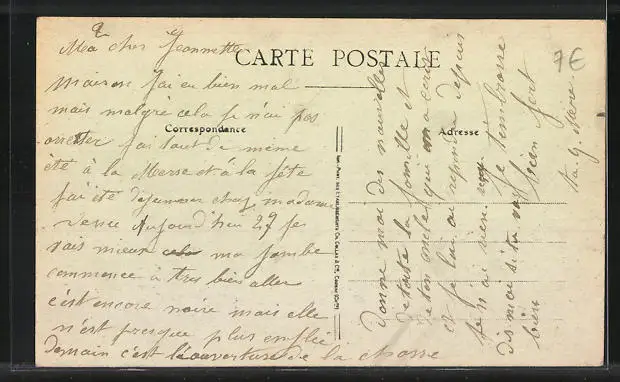 2
Ma cher Jeannette
CARTE POSTALE
7€
maison j'ai eu bien mal
mais malgré cela je n'ai pas
Correspondance
arretter j'ai tout de même
été à la Messe et à la fête
j'ai été dejeuner chez madame
Aujourd'hui 27 je
vais mieux ma jambe
commence à tres bien aller
c'est encore noire mais elle
n'est presque plus enflée
Demain c'est l'ouverture de la chasse
Adresse
Donne moi des nouvelles
de toute la famille et
de ton oncle qui m'a écrit
et je lui ai repondu depuis
je n'ai rien
dis moi si tu vas
bien
je t'embrasse
bien fort
ta g. Mere